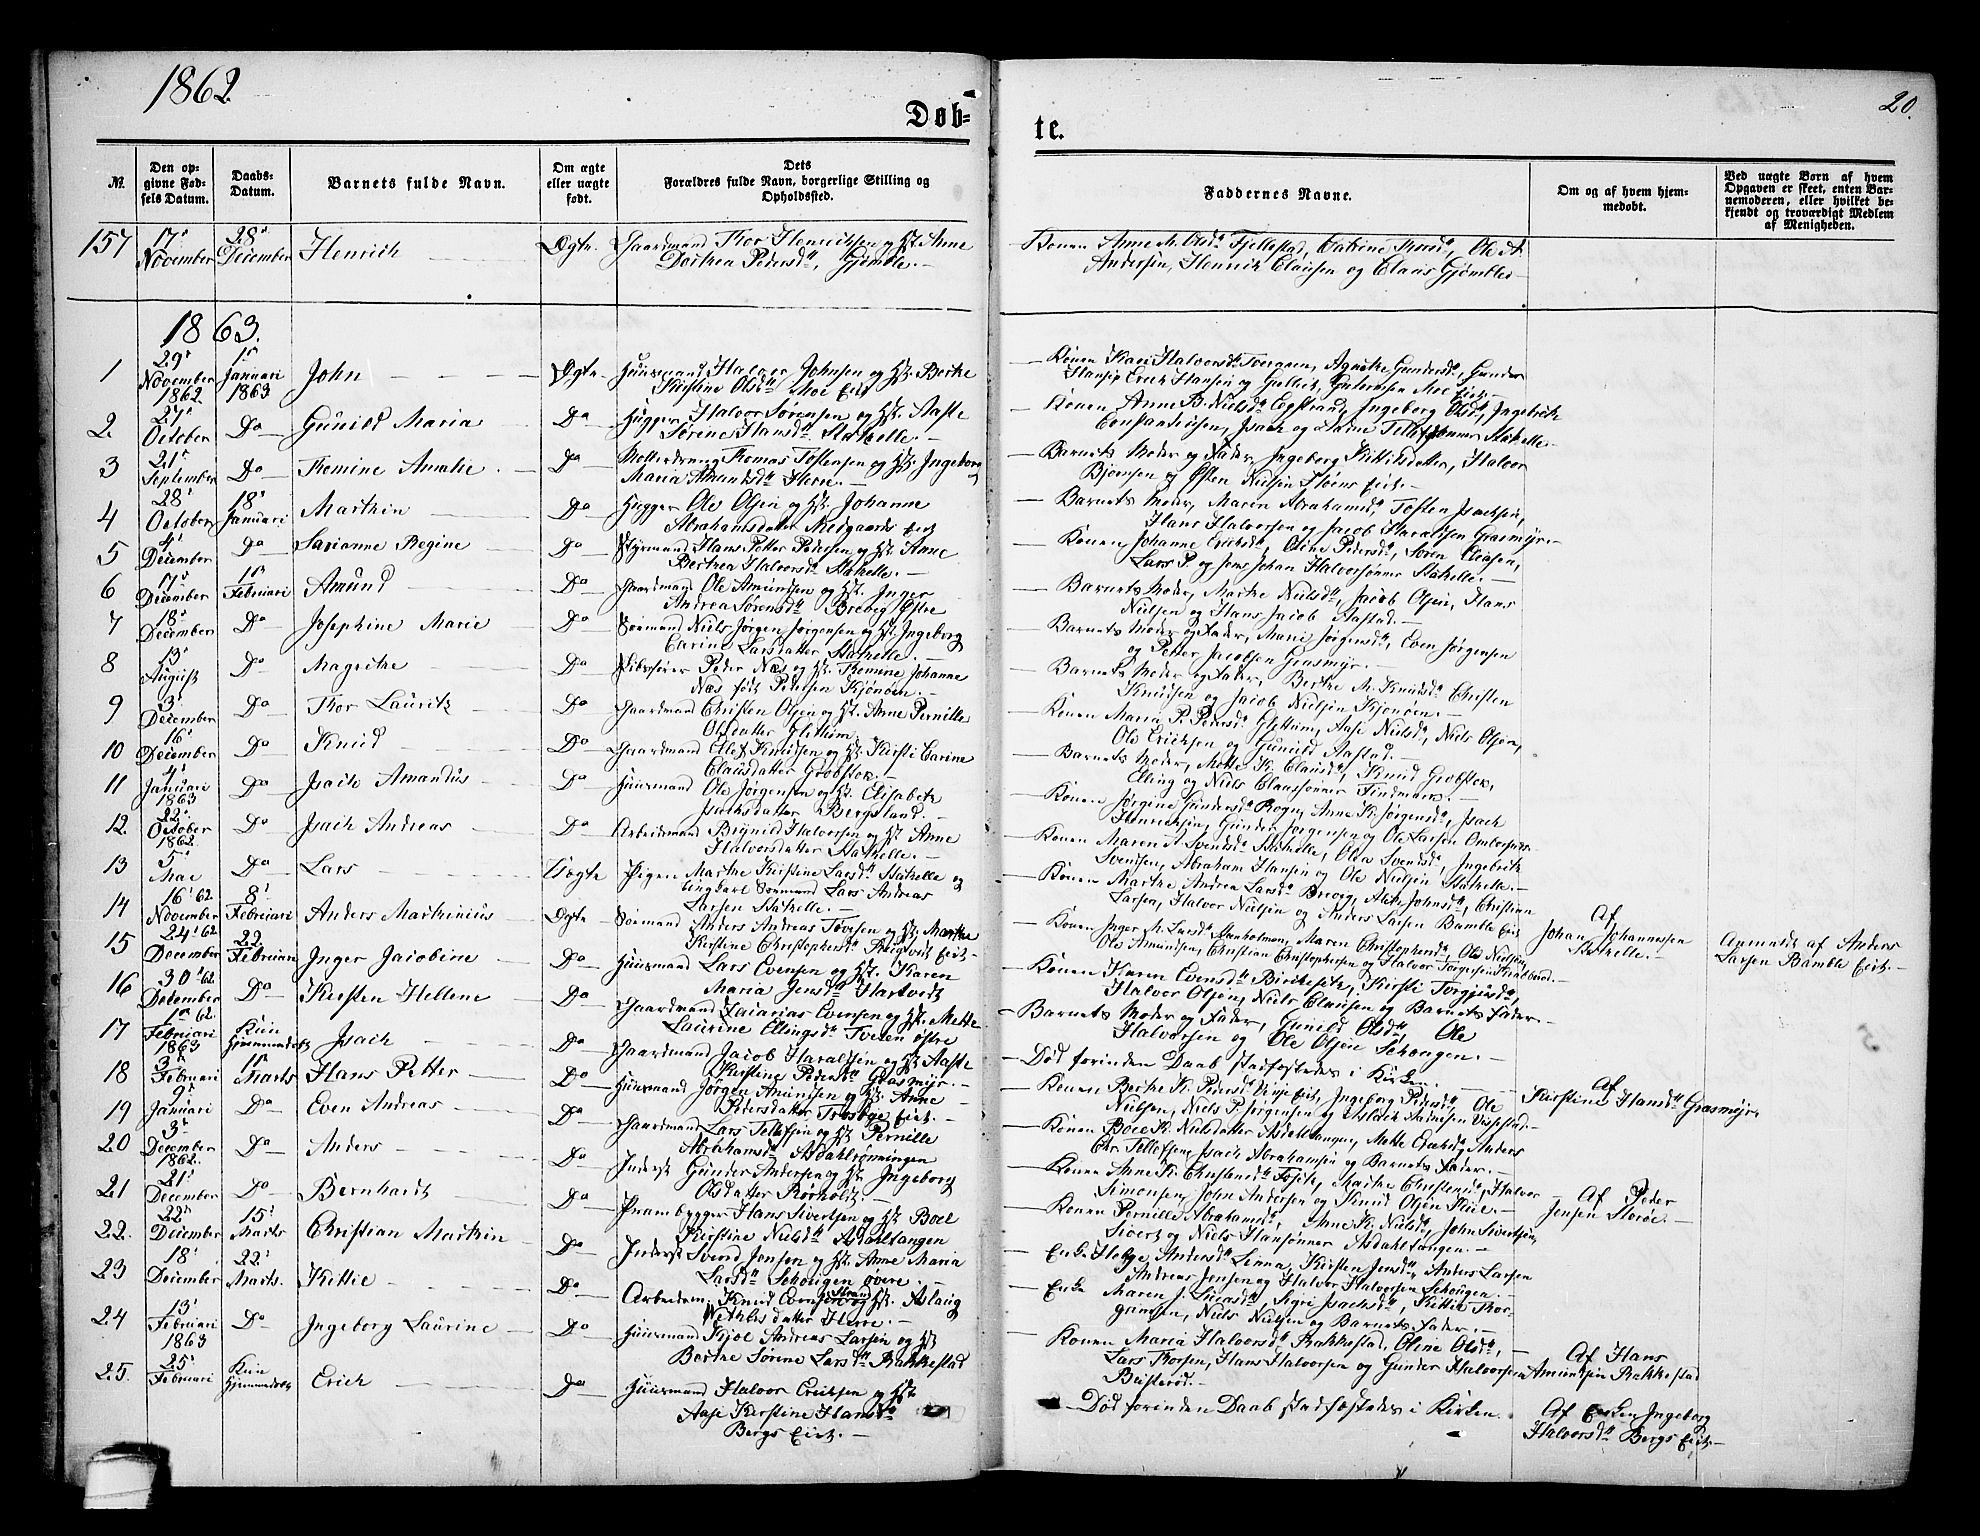 1862
20.
Døb-
te.
№.
Den op-
givne Fød-
sels Datum.
Daabs-
Datum.
Barnets fulde Navn.
Om ægte
eller uægte
født.
Dets
Forældres fulde Navn, borgerlige Stilling og
Opholdssted.
Faddernes Navne.
Om og af hvem hjem-
medøbt.
Ved uægte Børn af hvem
Opgaven er skeet, enten Bar-
nemoderen, eller hvilket be-
kjendt og troværdigt Medlem
af Menigheden.
157 17' November 28' December Henrich Ægte. Gaardmand Thor Henrichsen og H. Anne
Dorthea Pedersd. Gjømle.
Konen Anne M. Olsd. Fjellestad, Cathrine Olsd., Ole A.
Andersen, Henrich Clausen og Claus Gjømble
1863.
1 29' November 1862 1' Januari 1863 John Ægte Huusmand Halvor Johnsen og H. Berthe
Kirstine Olsd. Moe Eiet
Konen Kari Halvorsd. Agnethe Gundersd., Gunder
Erich Hansen og Moe Eiet.
2. 27' October Do Gunild Maria Do Hugger Halvor Sørensen og H. Aaste
Sørine Hansd. Stathelle.
Konen Anne B. Nielsd. Egstrand, Ingeborg Olsd., Ingebrith
Isach og Stathelle.
3 21' September Do Thomine Amalie Do Thomas Tostensen og H. Ingeborg
Maria Amundsd. Herre.
Barnets Moder og Fader, Ingeborg Kittilsdatter, Halvor
Bjørnsen og Østen Nielsen Eiet.
4 28' October 18' Januari Marthin Do Hugger Ole Olsen og H. Johanne
Abrahamsdatter Eiet
Barnets Moder, Maren Abrahamsd., Tosten Isachsen,
Hans Halvorsen og Jacob Haraldsen Grasmyr.
5 4' December Do Sarianne Regine Do Styrmand Hans Petter Pedersen og H. Anne
Berthea Halvorsd. Stathelle.
Konen Johanne Oline Pedersd., Søren Eliasen,
Lars P. og Jens Johan Halvorsønner Stathelle.
6 17' December 1' Februari Amund Do Gaardmand Ole Amundsen og H. Inger
Andrea Sørensd. Brevig Østre
Barnets Moder, Marthe Nielsd., Jacob Olsen, Hans
Nielsen og Hans Jacob Aastad.
7 18' December Do Josephine Marie Do Sømand Niels Jørgen Jørgensen og H. Ingeborg
Carine Larsdatter Stathelle.
Barnets Moder og Fader, Marie Jørgensd., Even Jørgensen
og Petter Jacobsen Grasmyr.
8 13' August Do Magrethe Do Skibsfører Peder Næs og H. Thomine Johanne
Næs født Petersen Kjønøen.
Barnets Moder og Fader, Berthe M. Knudsd. Christen
Knudsen og Jacob Nielsen Kjønøen.
9 3' December Do Thor Lauritz Do Gaardmand Christen Olsen og H. Anne Pernille
Olsdatter
Konen Maria P. Pedersd. Aase Nielsd., Niels Olsen,
Ole Erichsen og Gunild Aastad.
10 16' December Do Knud Do Gaardmand Knudsen og H. Kirsti Carine
Clausdatter Grobstok.
Barnets Moder, Mette K. Clausd., Knud Grobstok,
Elling og Niels Claussønner Findmark.
11 4' Januari 1863 Do Isach Amandus Do Huusmand Ole Jørgensen og H. Elisabeth
Isachsdatter Bergsland.
Konen Jørgine Gundersd. Rogn, Anne K. Jørgensd., Isach
Henrichsen, Gunder Jørgensen og Ole Larsen
12. 22' October 1862 Do Isach Andreas Do Arbeidsmand Halvorsen og H. Anne
Halvorsdatter Stathelle.
Konen Maren A. Svendsd. Stathelle, Olea Svendsd., Ingebrith
Svendsen, Abraham Hansen og Ole Nielsen Stathelle.
13 5' Mae Do Lars Uægte Pigen Marthe Kirstine Larsd. Stathelle og
Ungkarl Sømand Lars Andreas
Larsen Stathelle.
Konen Marthe Andrea Larsd. Brevig, Johnsd., Christian
Larsen, Halvor Nielsen og Anders Larsen Bamble Eiet
Af
Johan Johannessen
Stathelle.
Anmeldt af Anders
Larsen Bamble Eiet.
14 16' 62 November 8' Februari Anders Marthinius Ægte Sømand Anders Andreas Tovesen og H. Marthe
Kirstine Christophersd. Eiet.
Konen Inger M. Larsd. Maren Christophersd., Ole Nielsen,
Ole Amundsen, Christian Christophersen og Halvor Torgersen
15 24' 62 December 22 Februari Inger Jacobine Do Huusmand Lars Evensen og H. Karen
Maria Jensd. Hartvedt
Konen Karen Evensd. Kirsti Torgjusd.,
Halvor Olsen, Niels Clausen og Barnets Fader.
16 30' 62 December Do Kirsten Hellene Do Gaardmand Zakarias Evensen og H. Mette
Laurine Ellingsd. Tveten østre
Barnets Moder og Fader, Gunild Olsd. Ole
Halvorsen og Ole Olsen Schougen.
17 1' 62 Februari 1863 Kun Hjemmedøbt Isach Do Gaardmand Jacob Haraldsen og H. Aaste
Kirstine Pedersd. Grasmyr.
Død forinden Daab stadfæstedes i Kirken.
Af
Kirstine Hansd. Grasmyr.
18 3' Februari 1' Marts Hans Petter Do Huusmand Jørgen Amundsen og H. Anne
Pedersdatter Trosbye Eiet.
Konen Berthe K. Pedersd. Eiet, Ingeborg Pedersd., Ole
Nielsen, Niels P. Jørgensen og
19 9' Januari Do Even Andreas Do Gaardmand Lars Tellefsen og H. Pernille
Abrahamsd. Asdahlrønningen
Konen Boel K. Nielsdatter Asdaltangen, Mette Anders
Chr. Tellefsen, Isach Abrahamsen og Barnets Fader.
20 3' December 1862. Do Anders Do Inderst Gunder Andersen og H. Ingeborg
Olsdatter Rørholt.
Konen Anne K. Christensd. Marthe Christensd., Halvor
Simonsen, John Andersen og Knud Olsen
21 21' December Do Bernhardt Do Prambygger Hans Sivertsen og H. Boel
Kirstine Nielsd. Asdahltangen
Konen Pernille Abrahamsd., Anne K. Nielsd., John Sivertsen,
Sivert og Niels Hansønner Asdahltangen.
Af Peder
Jensen Storøe.
22. 22' December 15' Marts Christian Marthin Do Inderst Svend Jensen og H. Anne Maria
Larsd. Schougen øvre.
Enke Helge Andersd. Linna, Kirsten Jensd., Anders Larsen
Andreas Jensen og Halvor Halvorsen Schougen.
23 18' December 22' Marts. Kittie Do Arbeidsm. Knud Evensen og H. Aslaug
Herre.
Enke Maren J. Sigri Isachsd., Kittil Thor-
grimsen, Niels Nielsen og Barnets Fader.
24 13' Februari 1863 Do Ingeborg Laurine Do Huusmand Kjøl Andreas Larsen og H.
Berthe Sørine Larsd. Rakkestad
Konen Maria Halvorsd. Rakkestad, Oline Olsd.,
Lars Thorsen, Hans Halvorsen og Gunder Halvorsen
Af Hans
Amundsen Rakkestad
25. 25' Februari Kun Hjemmedøbt Erich Do Huusmand Halvor Erichsen og H.
Aase Kirstine Hansd.
Bergs Eiet.
Død forinden Daab stadfæstedes i Kirken.
Af Enken Ingeborg
Halvorsd. Bergs Eiet.